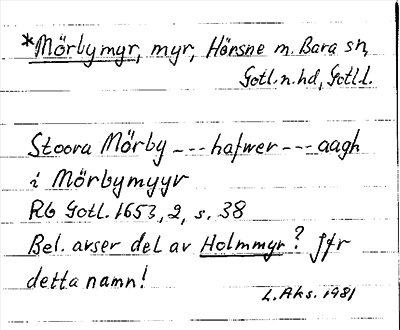 *Mörbymyr, myr, Hörsne m. Bara sn,
Gotl. n. hd, Gotl. l.
Stoora Mörby --- hafwer --- aagh
i Mörbymyyr
Rb Gotl. 1653, 2, s. 38
Bel. avser del av Holmmyr? Jfr
detta namn!
L. Aks. 1981